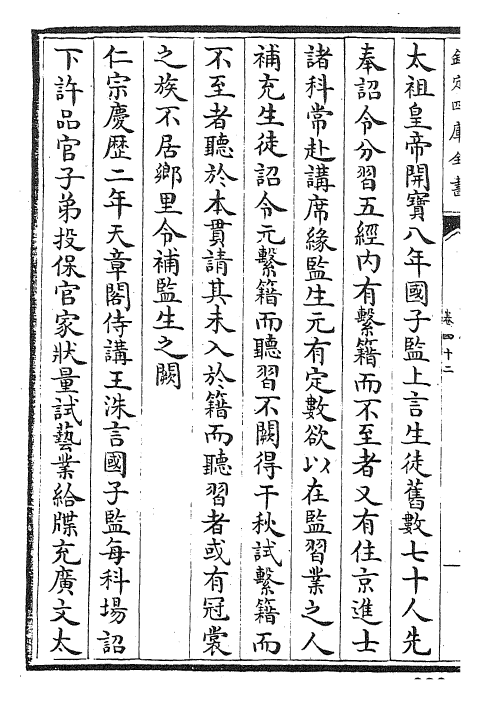 欽定四庫全書
卷四十二
太祖皇帝開寶八年國子監上言生徒舊數七十人先
奉詔令分習五經内有繫籍而不至者又有住京進士
諸科常赴講席緣監生元有定數欲以在監習業之人
補充生徒詔令元繫籍而聽習不闕得干秋試繫籍而
不至者聽於本貫請其未入於籍而聽習者或有冠裳
之族不居鄉里令補監生之闕
仁宗慶歴二年天章閣侍講王洙言國子監每科場詔
下許品官子弟投保官家狀量試藝業給牒充廣文太